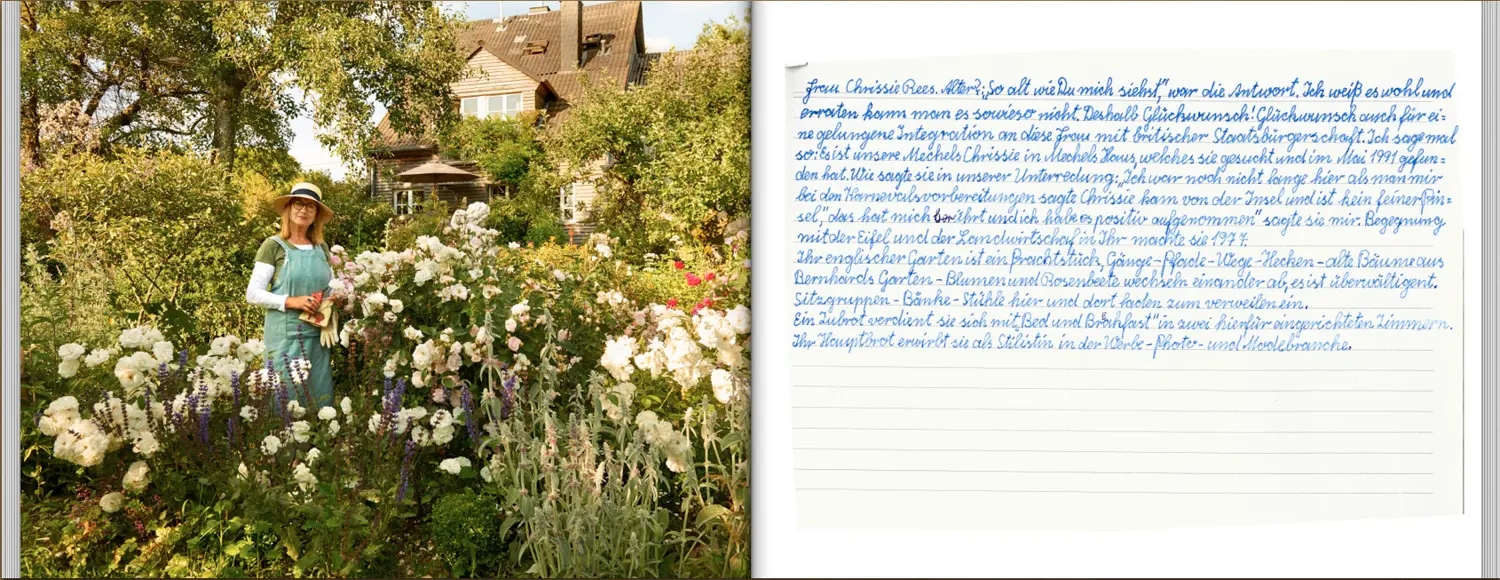 Frau Chrissie Rees. Alter?: „So alt wie Du mich siehst", war die Antwort. Ich weiß es wohl und
erraten kann man es sowieso nicht. Deshalb Glückwunsch! Glückwunsch auch für ei=
ne gelungene Integration an diese Frau mit britischer Staatsbürgerschaft. Ich sage mal
so: Es ist unsere Mechels Chrissie in Mechels Haus, welches sie gesucht und im Mai 1991 gefun=
den hat. Wie sagte sie in unserer Unterredung: „Ich war noch nicht lange hier als man mir
bei den Karnevalsvorbereitungen sagte Chrissie kann von der Insel und ist kein feiner Pin=
sel," das hat mich berührt und ich habe es positiv aufgenommen" sagte sie mir. Begegnung
mit der Eifel und der Landwirtschaf in Ihr machte sie 1977.
Ihr englischer Garten ist ein Prachtstück, Gänge - Pfade - Wege - Hecken - alte Bäume aus
Bernhards Garten - Blumen und Rosenbeete wechseln einander ab, es ist überwältigent.
Sitzgruppen - Bänke - Stühle hier und dort laden zum verweilen ein.
Ein Zubrot verdient sie sich mit „Bed und Brekfast" in zwei hierfür eingerichteten Zimmern.
Ihr Hauptbrot erwirbt sie als Stilistin in der Werbe - Photo - und Modebranche.